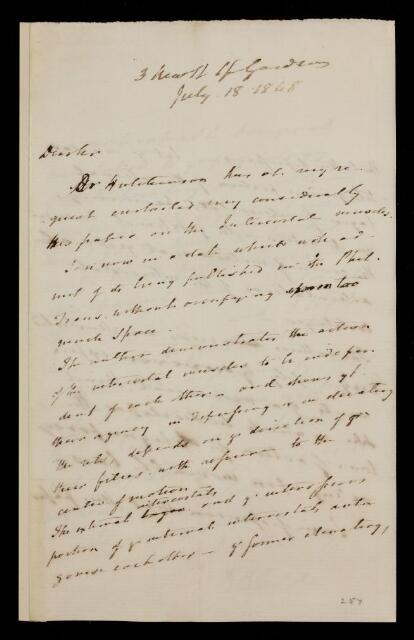 3 New St Sp Gardens
July 18 1848
Dear Sir
Dr Hutchinson has at my re-
quest contracted very considerably
his paper on the Intercostal muscles.
I is now in a state which will ad-
mit of its being published in the Phil.
Trans. without occupying too
much space.
The author demonstrates the action
of the intercostal muscles to be indepen-
dent of each other - and shows yt
their agency in depressing or in elevating
the ribs depends on ye direction of
their fibres with reference to the
centre of motion
The external intercostals and ye interosseous
portion of ye internal intercostals anta-
gonise each other - ye former elevating,
287